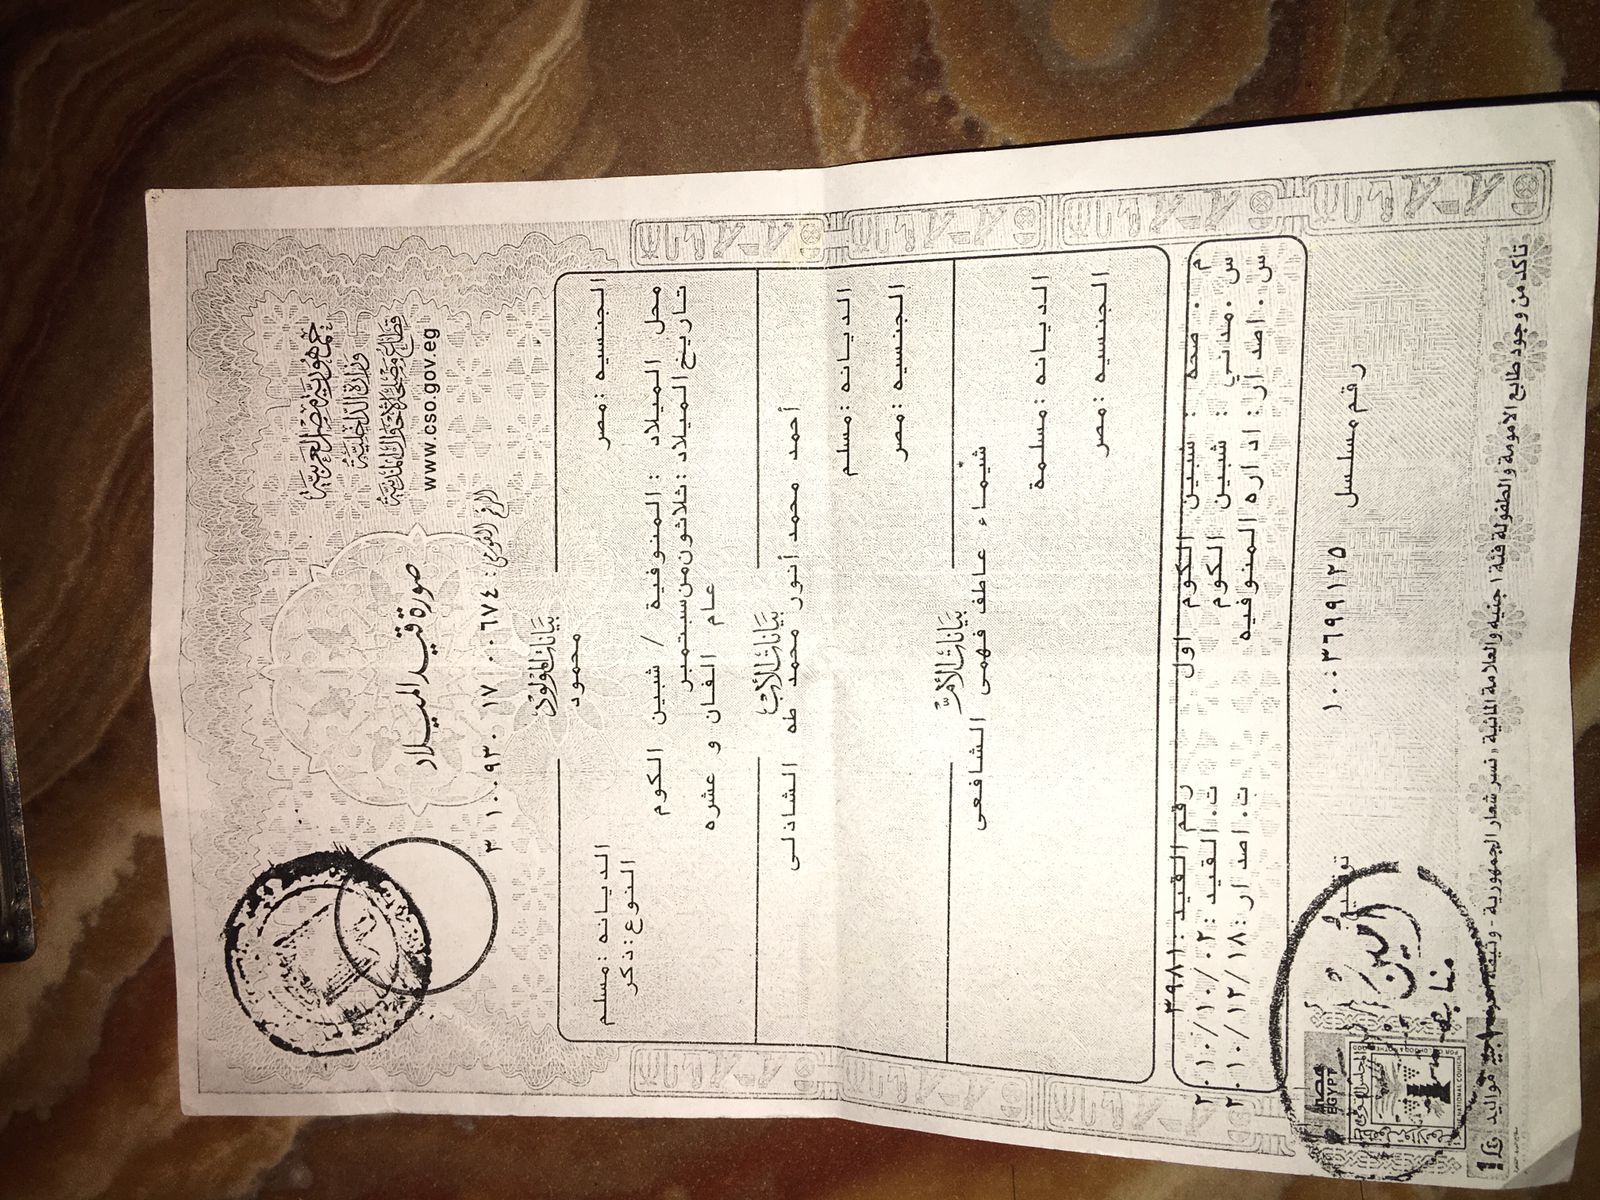 جمهورية مصر العربية
وزارة الداخلية
قطاع مصلحة الأحوال المدنية
www.cso.gov.eg
صورة قيد الميلاد
الرقم القومى: ٣١٠٠٩٣٠١٧٠٠٦٧٤
بيانات المولود
محمود
الجنسيه : مصر
الديانه : مسلم
النوع : ذكر
محل الميلاد : المنوفيه / شبين الكوم
تاريخ الميلاد : ثلاثون من سبتمبر
عام الفان و عشره
بيانات الأب
أحمد محمد أنور محمد طه الشاذلى
الديانه : مسلم
الجنسيه : مصر
بيانات الأم
شيماء عاطف فهمى الشافعى
الديانه : مسلمة
الجنسيه : مصر
م . صحه : شبين الكوم اول رقم القيد : ٣٩٨١
س . مدني : شبين الكوم ت . القيد : ٢٠١٠/١٠/٠٢
س . اصدار : اداره المنوفيه ت . اصدار : ٢٠١٠/١٢/١٨
رقم مسلسل ١٠٠٣٦٩٩١٢٥
توقيع
مصر
EGYPT
تأكد من وجود طابع الامومة والطفولة فئة ١ جنيه والعلامة المائية « نسر شعار الجمهورية - وثيقة مواليد